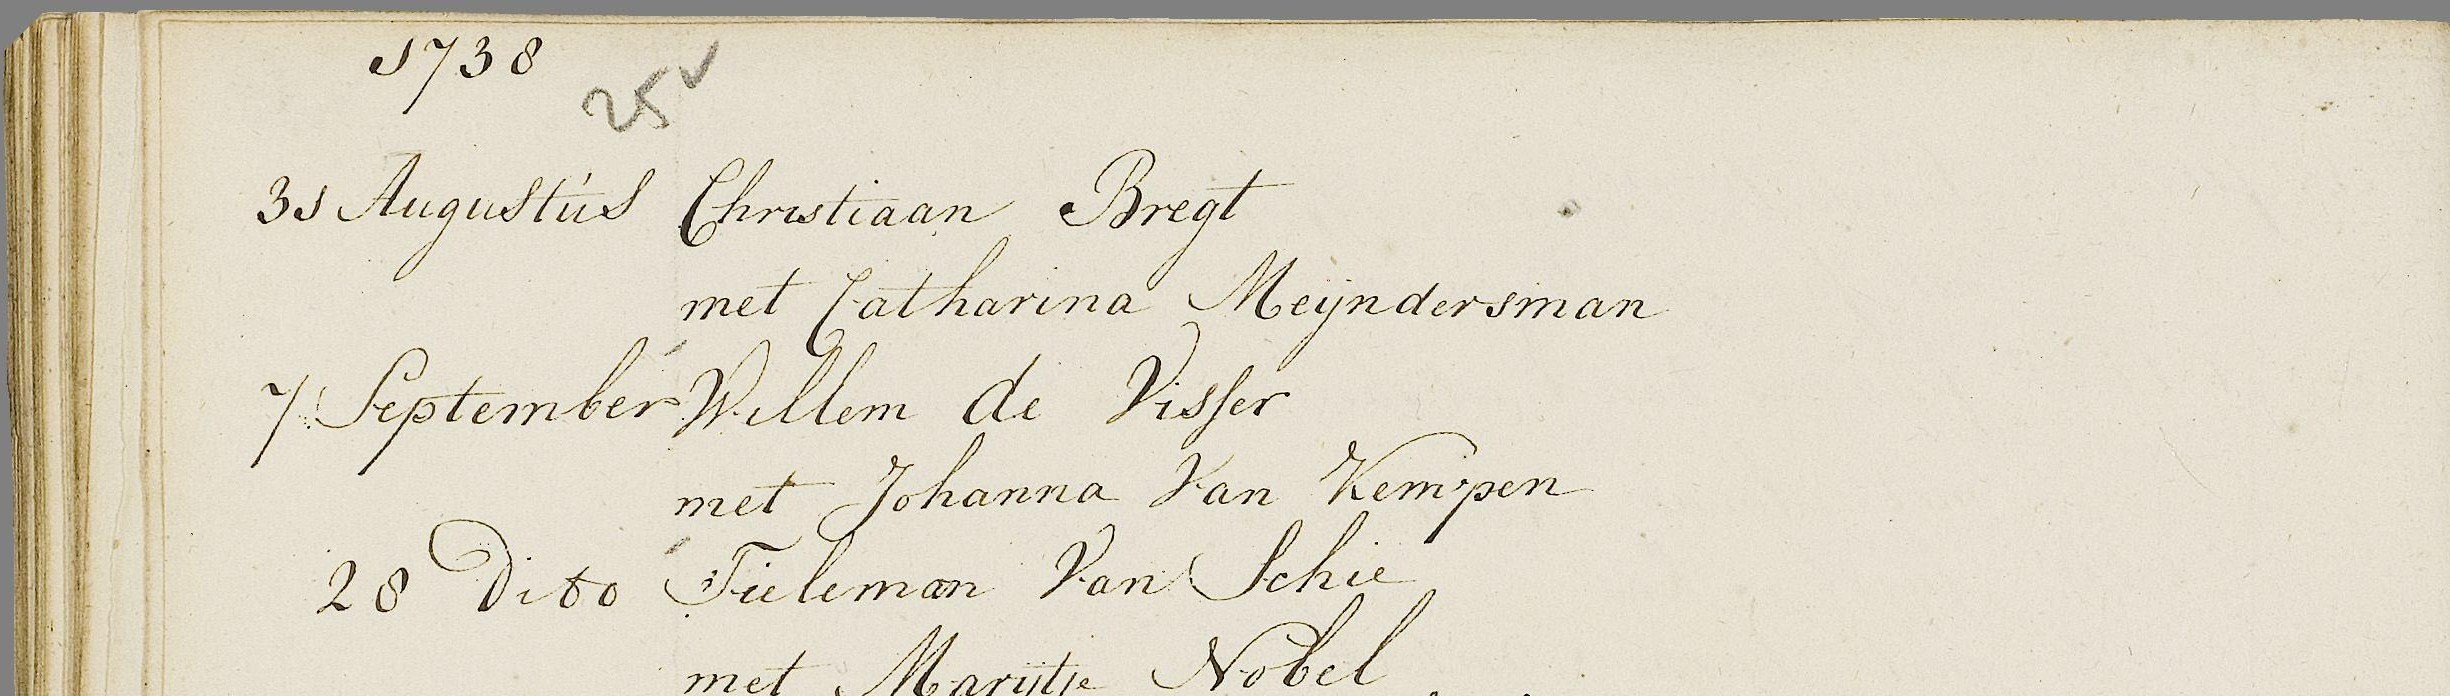 1738
25v
31 Augustus Christiaan Bregt
met Catharina Meijndersman
7 September Willem de Visser
met Johanna Van Kempen
28 Dito Tieleman Van Schie
met Marijtje Nobel